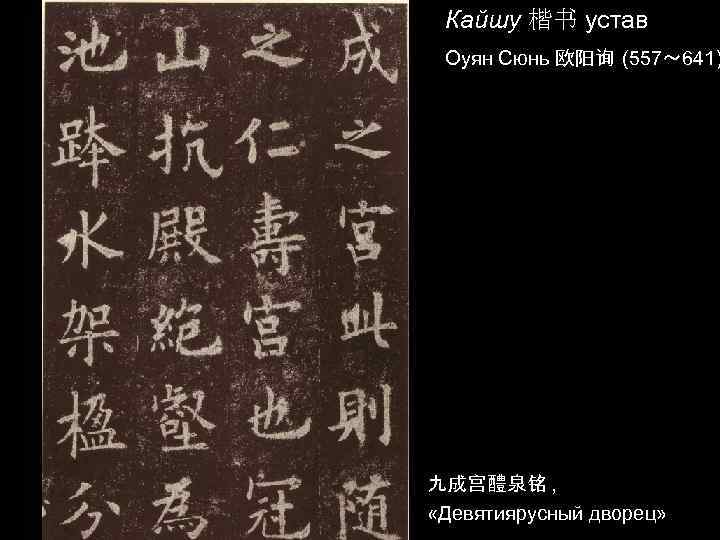 成之宮此則随
之仁壽宮也冠
山抗殿絶壑為
池跨水架楹分
Кайшу 楷书 устав
Оуян Сюнь 欧阳询 (557～641)
九成宫醴泉铭 ,
«Девятиярусный дворец»